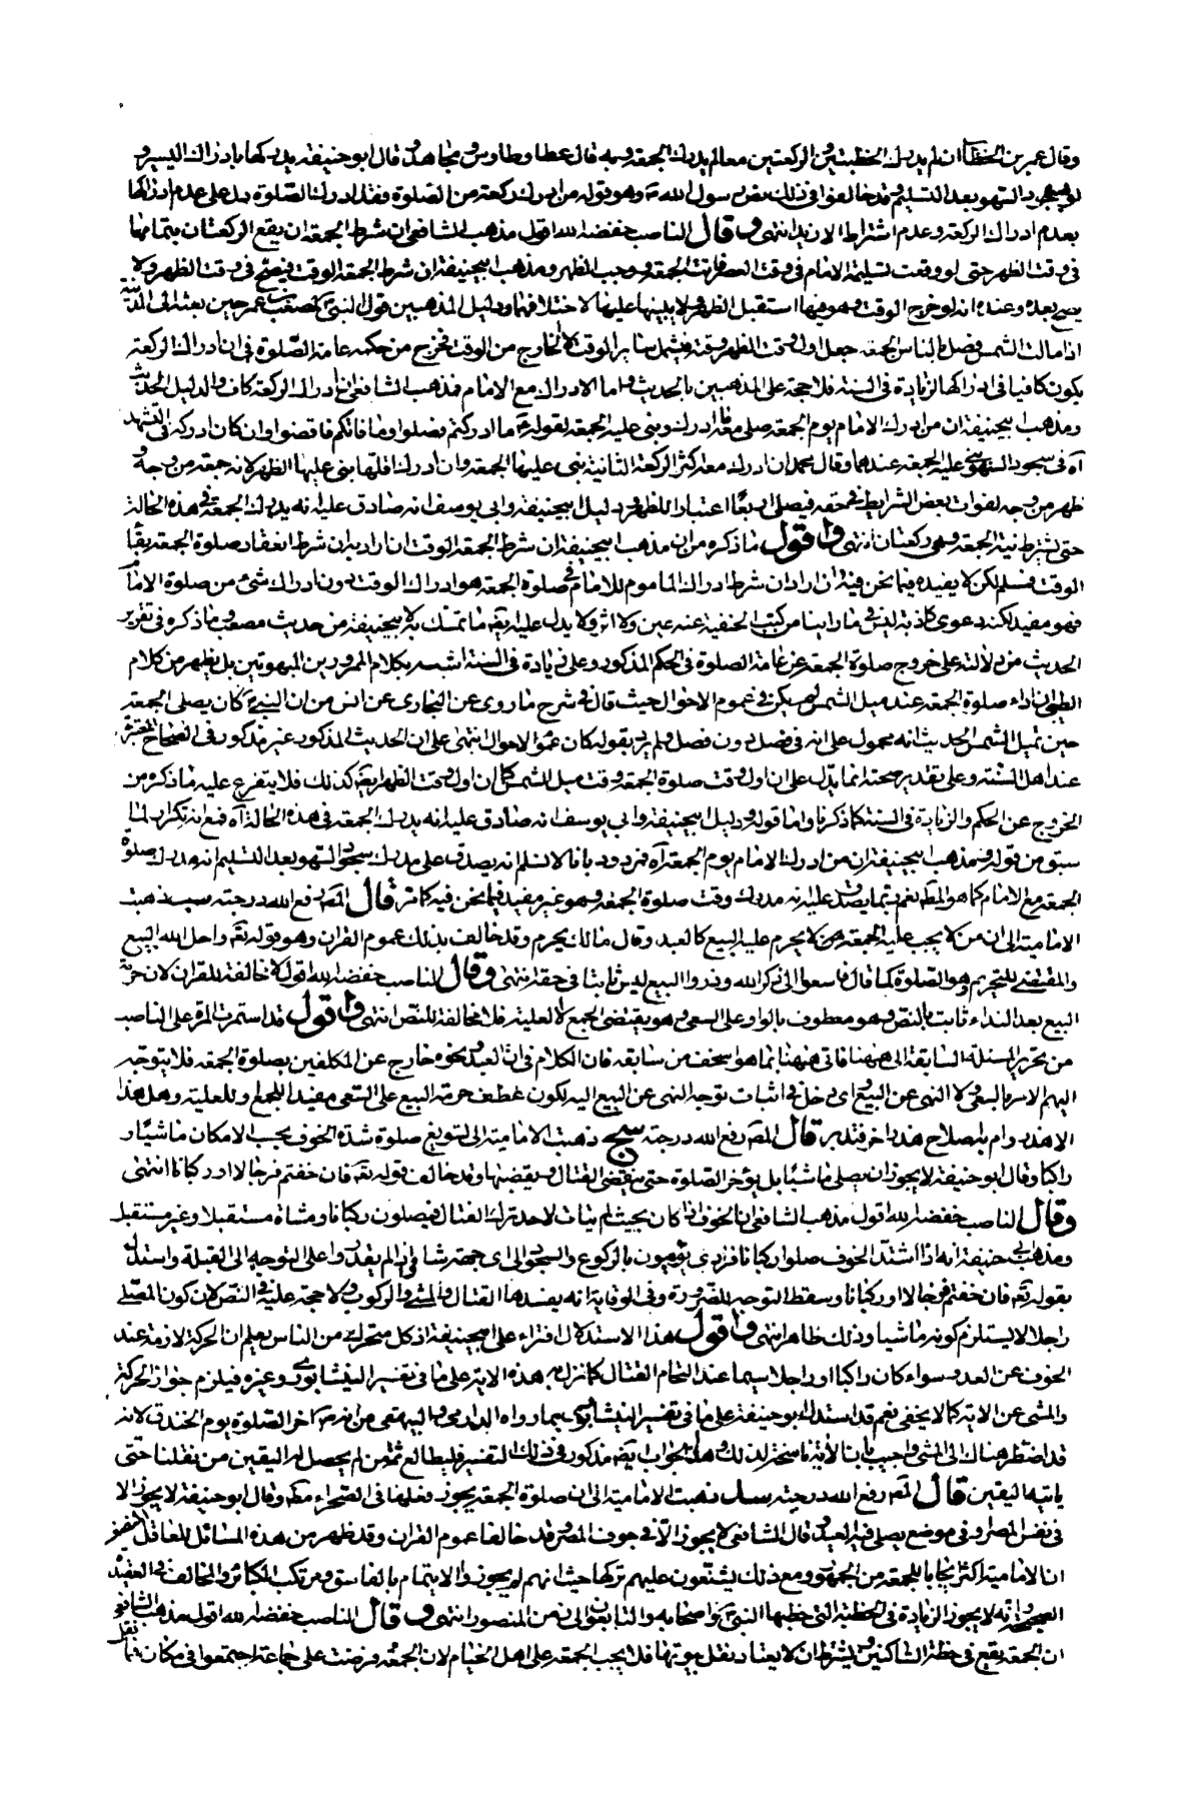 وقال عمر بن الخطاب ان لم يدرك الخطبتين والركعتين معا لم يدرك الجمعة وبه قال عطا وطاوس ومجاهد وقال ابو حنيفة يدركها بادراك اليسير و
لو سجود السهو بعد التسليم وقد خالفوا في ذلك نص رسول الله ص وهو قوله من ادرك ركعة من الصلوة فقد ادرك الصلوة دل على عدم ادراكها
بعدم ادراك الركعة وعدم اشتراط الازيد انتهى وقال الناصب خفضه الله اقول مذهب الشافعي ان شرط الجمعة ان يقع الركعتان بتمامها
في وقت الظهر حتى لو وقعت تسليمة الامام في وقت العصر فاتت الجمعة ووجب الظهر ومذهب ابيحنيفة ان شرط الجمعة الوقت فيصح في وقت الظهر ولا
يصح بعده وعنده انه لو خرج الوقت وهو فيها استقبل الظهر ولا يبنيها عليها لاختلافهما ودليل المذهبين قول النبي ص لمصعب بن عمير حين بعثه الى المدينة
اذا مالت الشمس فصل بالناس الجمعة جعل اول وقت الظهر وقته فيشمل سائر الوقت الا الخارج من الوقت فخرج من حكمه عامة الصلوة في ان ادراك الركعة
يكون كافيا في ادراكها لزيادة في السنة فلا حجة على المذهبين بالحديث واما الادراك مع الامام فمذهب الشافعي ان ادراك الركعة كاف والدليل الحديث
ومذهب ابيحنيفة ان من ادرك الامام يوم الجمعة صلى معه ما ادرك وبنى عليه الجمعة لقوله ع ما ادركتم فصلوا وما فاتكم فاقضوا وان كان ادركه في التشهد
او في سجود السهو بنى عليه الجمعة عندهما وقال محمد ان ادرك معه اكثر الركعة الثانية بنى عليها الجمعة وان ادرك اقلها بنى عليها الظهر لانه جمعة من وجه و
ظهر من وجه لفوات بعض الشرايط في حقه فيصلي اربعا اعتبارا للظهر ودليل ابيحنيفة وابي يوسف انه صادق عليه انه يدرك الجمعة في هذه الحالة
حتى يشترط نية الجمعة وهي ركعتان انتهى واقول ما ذكره من ان مذهب ابيحنيفة ان شرط الجمعة الوقت ان اراد به ان شرط انعقاد صلوة الجمعة بقاء
الوقت فمسلم لكن لا يفيده فيما نحن فيه وان اراد ان شرط ادراك الماموم للامام في صلوة الجمعة هو ادراك الوقت دون ادراك شئ من صلوة الامام
فهو مفيد لكنه دعوى كاذبة ليس في ما راينا من كتب الحنفية عنه عين ولا اثر ولا يدل عليه ايضا ما تمسك به لابيحنيفة من حديث مصعب وما ذكره في تقرير
الحديث من دلالته على خروج صلوة الجمعة عن عامة الصلوة في الحكم المذكور وعلى زيادة في السنة اشبه بكلام الممرورين المبهوتين بل يظهر من كلام
الطيبي ان اداء صلوة الجمعة عند ميل الشمس لم يكن في عموم الاحوال حيث قال في شرح ما روى عن البخاري عن انس من ان النبي ص كان يصلي الجمعة
حين تميل الشمس الحديث انه محمول على انه في فصل دون فصل ولم يرد بقوله كان عموم الاحوال انتهى على ان الحديث المذكور غير مذكور في الصحاح المعتبرة
عند اهل السنة وعلى تقدير صحته انما يدل على ان اول وقت صلوة الجمعة وقت ميل الشمس كما ان اول وقت الظهر ايضا كذلك فلا يتفرع عليه ما ذكره من
الخروج عن الحكم والزيادة في السنة كما ذكرنا واما قوله ودليل ابيحنيفة وابي يوسف انه صادق عليه انه يدرك الجمعة في هذه الحالة آه فمع انه تكرار لما
سبق من قوله ومذهب ابيحنيفة ان من ادرك الامام يوم الجمعة آه فمردود بانا لا نسلم انه يصدق على مدرك سجود السهو بعد التسليم انه مدرك صلوة
الجمعة مع الامام كما هو المط نعم ربما يصدق عليه انه مدرك وقت صلوة الجمعة وهو غير مفيد فيما نحن فيه كما مر قال المص رفع الله درجته سب ذهبت
الامامية الى ان من لا يجب عليه الجمعة لا يحرم عليه البيع كالعبد وقال مالك يحرم وقد خالف بذلك عموم القران وهو قوله تعالى واحل الله البيع
والمقتضي للتحريم هو الصلوة كما قال فاسعوا الى ذكر الله وذروا البيع ليس ثابتا في حقه انتهى وقال الناصب خفضه الله اقول لا مخالفة للقران لان حرمة
البيع بعد النداء ثابت بالنص وهو معطوف بالواو على السعي وهو يقتضي الجمع لا العلية فلا مخالفة للنص انتهى واقول قد استمرت المرة على الناصب
من تحرير المسئلة السابقة الى هيهنا فاتى هيهنا بما هو اسخف من سابقه فان الكلام في ان العبد ونحوه خارج عن المكلفين بصلوة الجمعة فلا يتوجه
اليهم الامر بالسعي ولا النهي عن البيع واي دخل في اثبات توجه النهي عن البيع اليه لكون عطف حرمة البيع على السعي مفيد للجمع او للعلية وهل هذا
الا هذر وام باصلاح هذر اخر فتدبر قال المص رفع الله درجته سج ذهبت الامامية الى تسويغ صلوة شدة الخوف بحسب الامكان ماشيا و
راكبا وقال ابو حنيفة لا يجوز ان يصلي ماشيا بل يؤخر الصلوة حتى ينقضي القتال ويقضيها وقد خالف قوله تعالى فان خفتم فرجالا او ركبانا انتهى
وقال الناصب خفضه الله اقول مذهب الشافعي ان الخوف اذا كان بحيث لم يتات لاحد ترك القتال فيصلون ركبانا ومشاة مستقبلا وغير مستقبل
ومذهب ابي حنيفة انه اذا اشتد الخوف صلوا ركبانا فرادى يؤميون بالركوع والسجود الى اي جهة شاؤا اذا لم يقدروا على التوجه الى القبلة واستدل
بقوله تعالى فان خفتم فرجالا او ركبانا وسقط التوجه للضرورة وفي الوقاية انه يفسدها القتال والمشي والركوب ولا حجة عليه في النص لان كون المصلي
راجلا لا يستلزم كونه ماشيا وذلك ظاهر انتهى واقول هذا الاستدلال افتراء على ابيحنيفة اذ كل متحرك من الناس يعلم ان الحركة لازمة عند
الخوف عن العدو سواء كان راكبا او راجلا سيما عند التحام القتال كما نزل به هذه الاية على ما في تفسير النيشابوري وغيره فيلزم جواز الحركة
والمشي عن الاية كما لا يخفى نعم قد استدل ابو حنيفة على ما في تفسير النيشابوري بما رواه الدارمي والبيهقي من انه ص اخر الصلوة يوم الخندق لانه
قد اضطر هناك الى المشي واجيب بان الاية ناسخة لذلك وهذا الجواب ايضا مذكور في ذلك التفسير فليطالع ثمة من لم يحصل له اليقين من نقلنا حتى
ياتيه اليقين قال المص رفع الله درجته سد ذهبت الامامية الى ان صلوة الجمعة يجوز فعلها في الصحراء وقال ابو حنيفة لا يجوز الا
في نفس المصر او في موضع يصلي فيه العيد وقال الشافعي لا يجوز الا في جوف المصر وقد خالفا عموم القران وقد ظهر من هذه المسائل للعاقل المنصف
ان الامامية اكثر ايجابا للجمعة من الجمهور ومع ذلك يشنعون عليهم تركها حيث انهم لم يجوزوا الايتمام بالفاسق ومرتكب الكبائر والمخالف في العقيدة
الصحيحة وانه لا يجوز الزيادة في الخطبة التي خطبها النبي ص واصحابه والتابعون الى زمن المنصور انتهى وقال الناصب خفضه الله اقول مذهب الشافعي
ان الجمعة يقع في خطة الساكنين ويشترط ان لا يعتاد نقل بيوتها فلا يجب الجمعة على اهل الخيام لان الجمعة فرضت على جماعة اجتمعوا في مكان